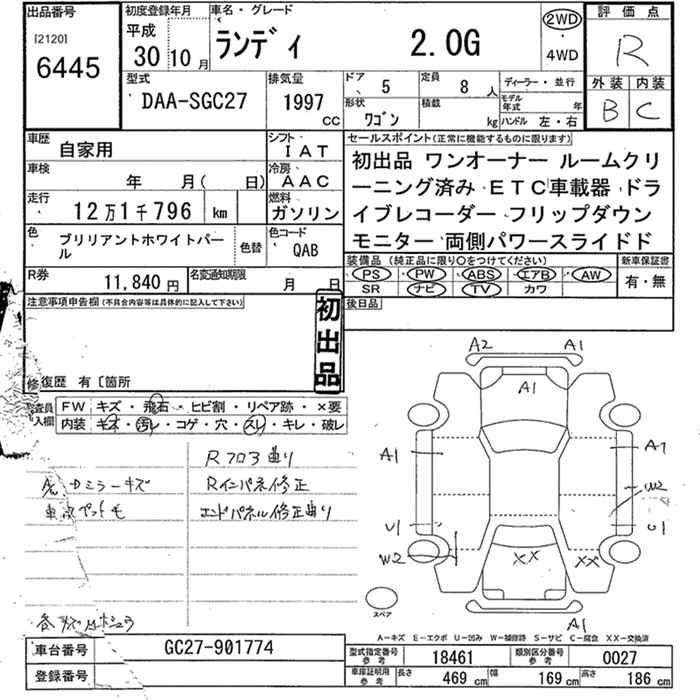 出品番号
[2120]
6445
初度登録年月
平成
30年 10月
車名・グレード
ランディ 2.0G
2WD
・
4WD
評価点
R
外装 内装
B C
型式
DAA-SGC27
排気量
1997 CC
ドア
5
形状
ワゴン
定員
8人
積載
kg
ディーラー・並行
モデル年式 年
ハンドル 左・右
車歴
自家用
シフト
IAT
車検
年 月( 日)
冷房
AAC
走行
12万1千796 km
燃料
ガソリン
色
ブリリアントホワイトパール
色替
色コード
QAB
R券
11,840円
名変通知期限
月 日
セールスポイント(正常に機能するものに限ります)
初出品 ワンオーナー ルームクリ
ーニング済み ETC車載器 ドラ
イブレコーダー フリップダウン
モニター 両側パワースライドド
装備品(純正品に限り○をつけてください)
PS PW ABS エアB AW
SR ナビ TV カワ
新車保証書
有・無
後日品
注意事項申告欄(不具合内容等は具体的に記入して下さい)
初出品
修復歴 有〔箇所
FW キズ・飛石・ヒビ割・リペア跡・×要
内装 キズ・汚レ・コゲ・穴・スレ・キレ・破レ
Rフロア曲り
Dミラーキズ
Rインパネ修正
エンドパネル修正曲り
A2 A1
A1
A1 A1
W2
U1 U1
W2
XX XX
A1
スペア
A-キズ E-エクボ U-凹み W-補修跡 S-サビ C-腐食 XX-交換済
車台番号
GC27-901774
登録番号
型式指定番号 参考
18461
類別区分番号 参考
0027
車庫証明用 参考
長さ 469 cm 幅 169 cm 高さ 186 cm